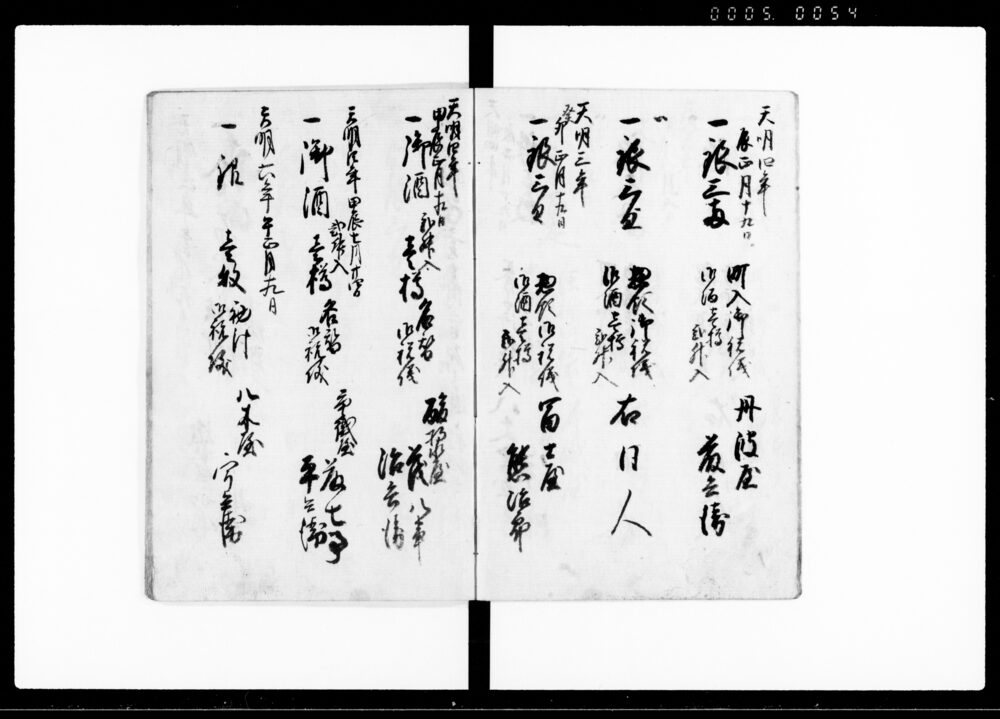 0005. 0054
天明四年
辰正月十九日
一銀三両
町入御祝儀
御酒壱樽
弐升入
丹波屋
藤兵衛
一銀三匁
惣領御祝儀
御酒壱樽
弐升入
右同人
天明三年
癸卯正月十九日
一銀三匁
惣領御祝儀
御酒壱樽
弐升入
富士屋
熊治郎
天明四年
甲辰正月十九日
一御酒
弐升入
壱樽
名替
御祝儀
茂八事
治兵衛
天明四年甲辰七月
一御酒
弐升入
壱樽
名替
御祝儀
藤七事
平兵衛
天明六年午正月十九日
一銀
壱枚
御祝儀
八木屋
宇兵衛